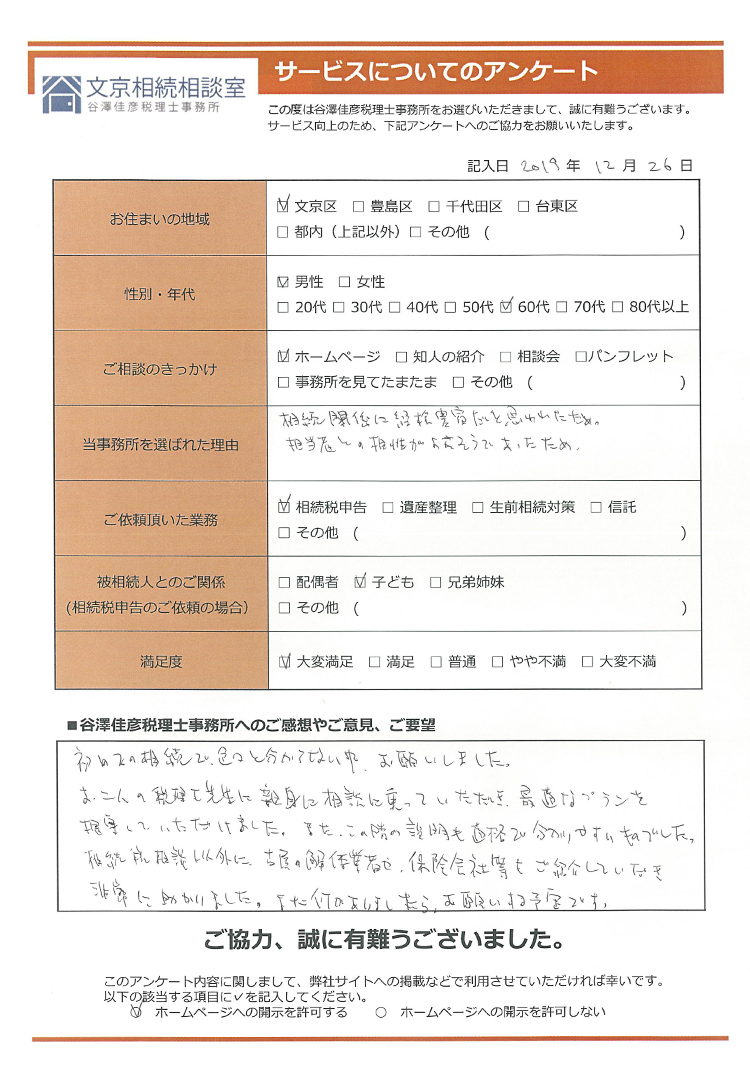 文京相続相談室
谷澤佳彦税理士事務所
サービスについてのアンケート
この度は谷澤佳彦税理士事務所をお選びいただきまして、誠に有難うございます。
サービス向上のため、下記アンケートへのご協力をお願いいたします。
記入日 2019 年 12 月 26 日
お住まいの地域
☑ 文京区 □ 豊島区 □ 千代田区 □ 台東区
□ 都内（上記以外）□ その他 （ ）
性別・年代
☑ 男性 □ 女性
□ 20代 □ 30代 □ 40代 □ 50代 ☑ 60代 □ 70代 □ 80代以上
ご相談のきっかけ
☑ ホームページ □ 知人の紹介 □ 相談会 □パンフレット
□ 事務所を見てたまたま □ その他 （ ）
当事務所を選ばれた理由
相続関係に経験豊富だと思われたため。
担当者との相性がよさそうであったため.
ご依頼頂いた業務
☑ 相続税申告 □ 遺産整理 □ 生前相続対策 □ 信託
□ その他 （ ）
被相続人とのご関係
(相続税申告のご依頼の場合)
□ 配偶者 ☑ 子ども □ 兄弟姉妹
□ その他 （ ）
満足度
☑ 大変満足 □ 満足 □ 普通 □ やや不満 □ 大変不満
■谷澤佳彦税理士事務所へのご感想やご意見、ご要望
初めての相続で、色々と分からない中、お願いしました。
お二人の税理士先生に親身に相談に乗っていただき、最適なプランを
指導していただけました。また、この際の説明も適格で分かりやすいものでした。
相続税相談以外に、古屋の解体業者や、保険会社等もご紹介していただき
非常に助かりました。また何かありましたら、お願いする予定です。
ご協力、誠に有難うございました。
このアンケート内容に関しまして、弊社サイトへの掲載などで利用させていただければ幸いです。
以下の該当する項目に✓を記入してください。
☑ ホームページへの開示を許可する ○ ホームページへの開示を許可しない